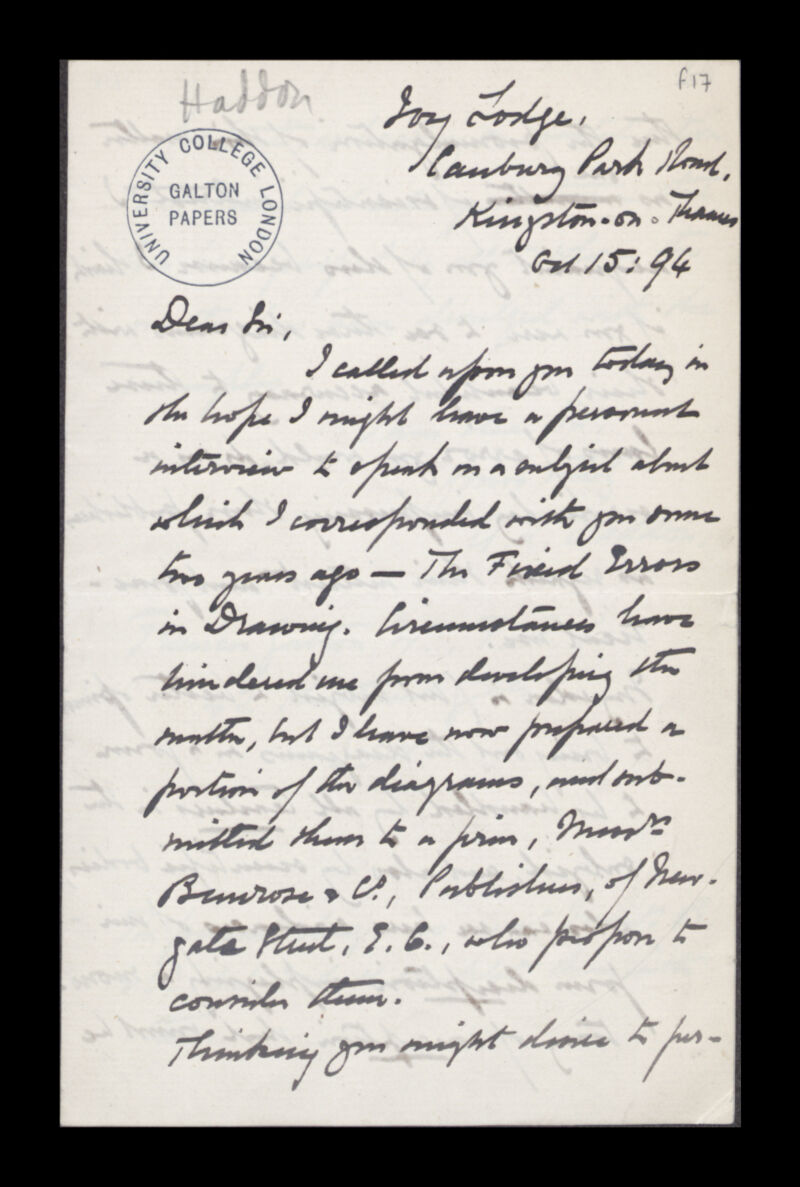 f17
Haddon
UNIVERSITY COLLEGE LONDON
GALTON
PAPERS
Ivy Lodge,
Canbury Park Road,
Kingston-on-Thames
Oct 15: 94
Dear Sir,
I called upon you today in
the hope I might have a personal
interview to speak on a subject about
which I corresponded with you some
two years ago — The Fixed Errors
in Drawing. Circumstances have
hindered me from developing the
matter, but I have now prepared a
portion of the diagrams, and sub-
mitted them to a firm, Messrs
Bemrose & Co., Publishers, of New-
gate Street, E.C., who propose to
consider them.
Thinking you might desire to per-